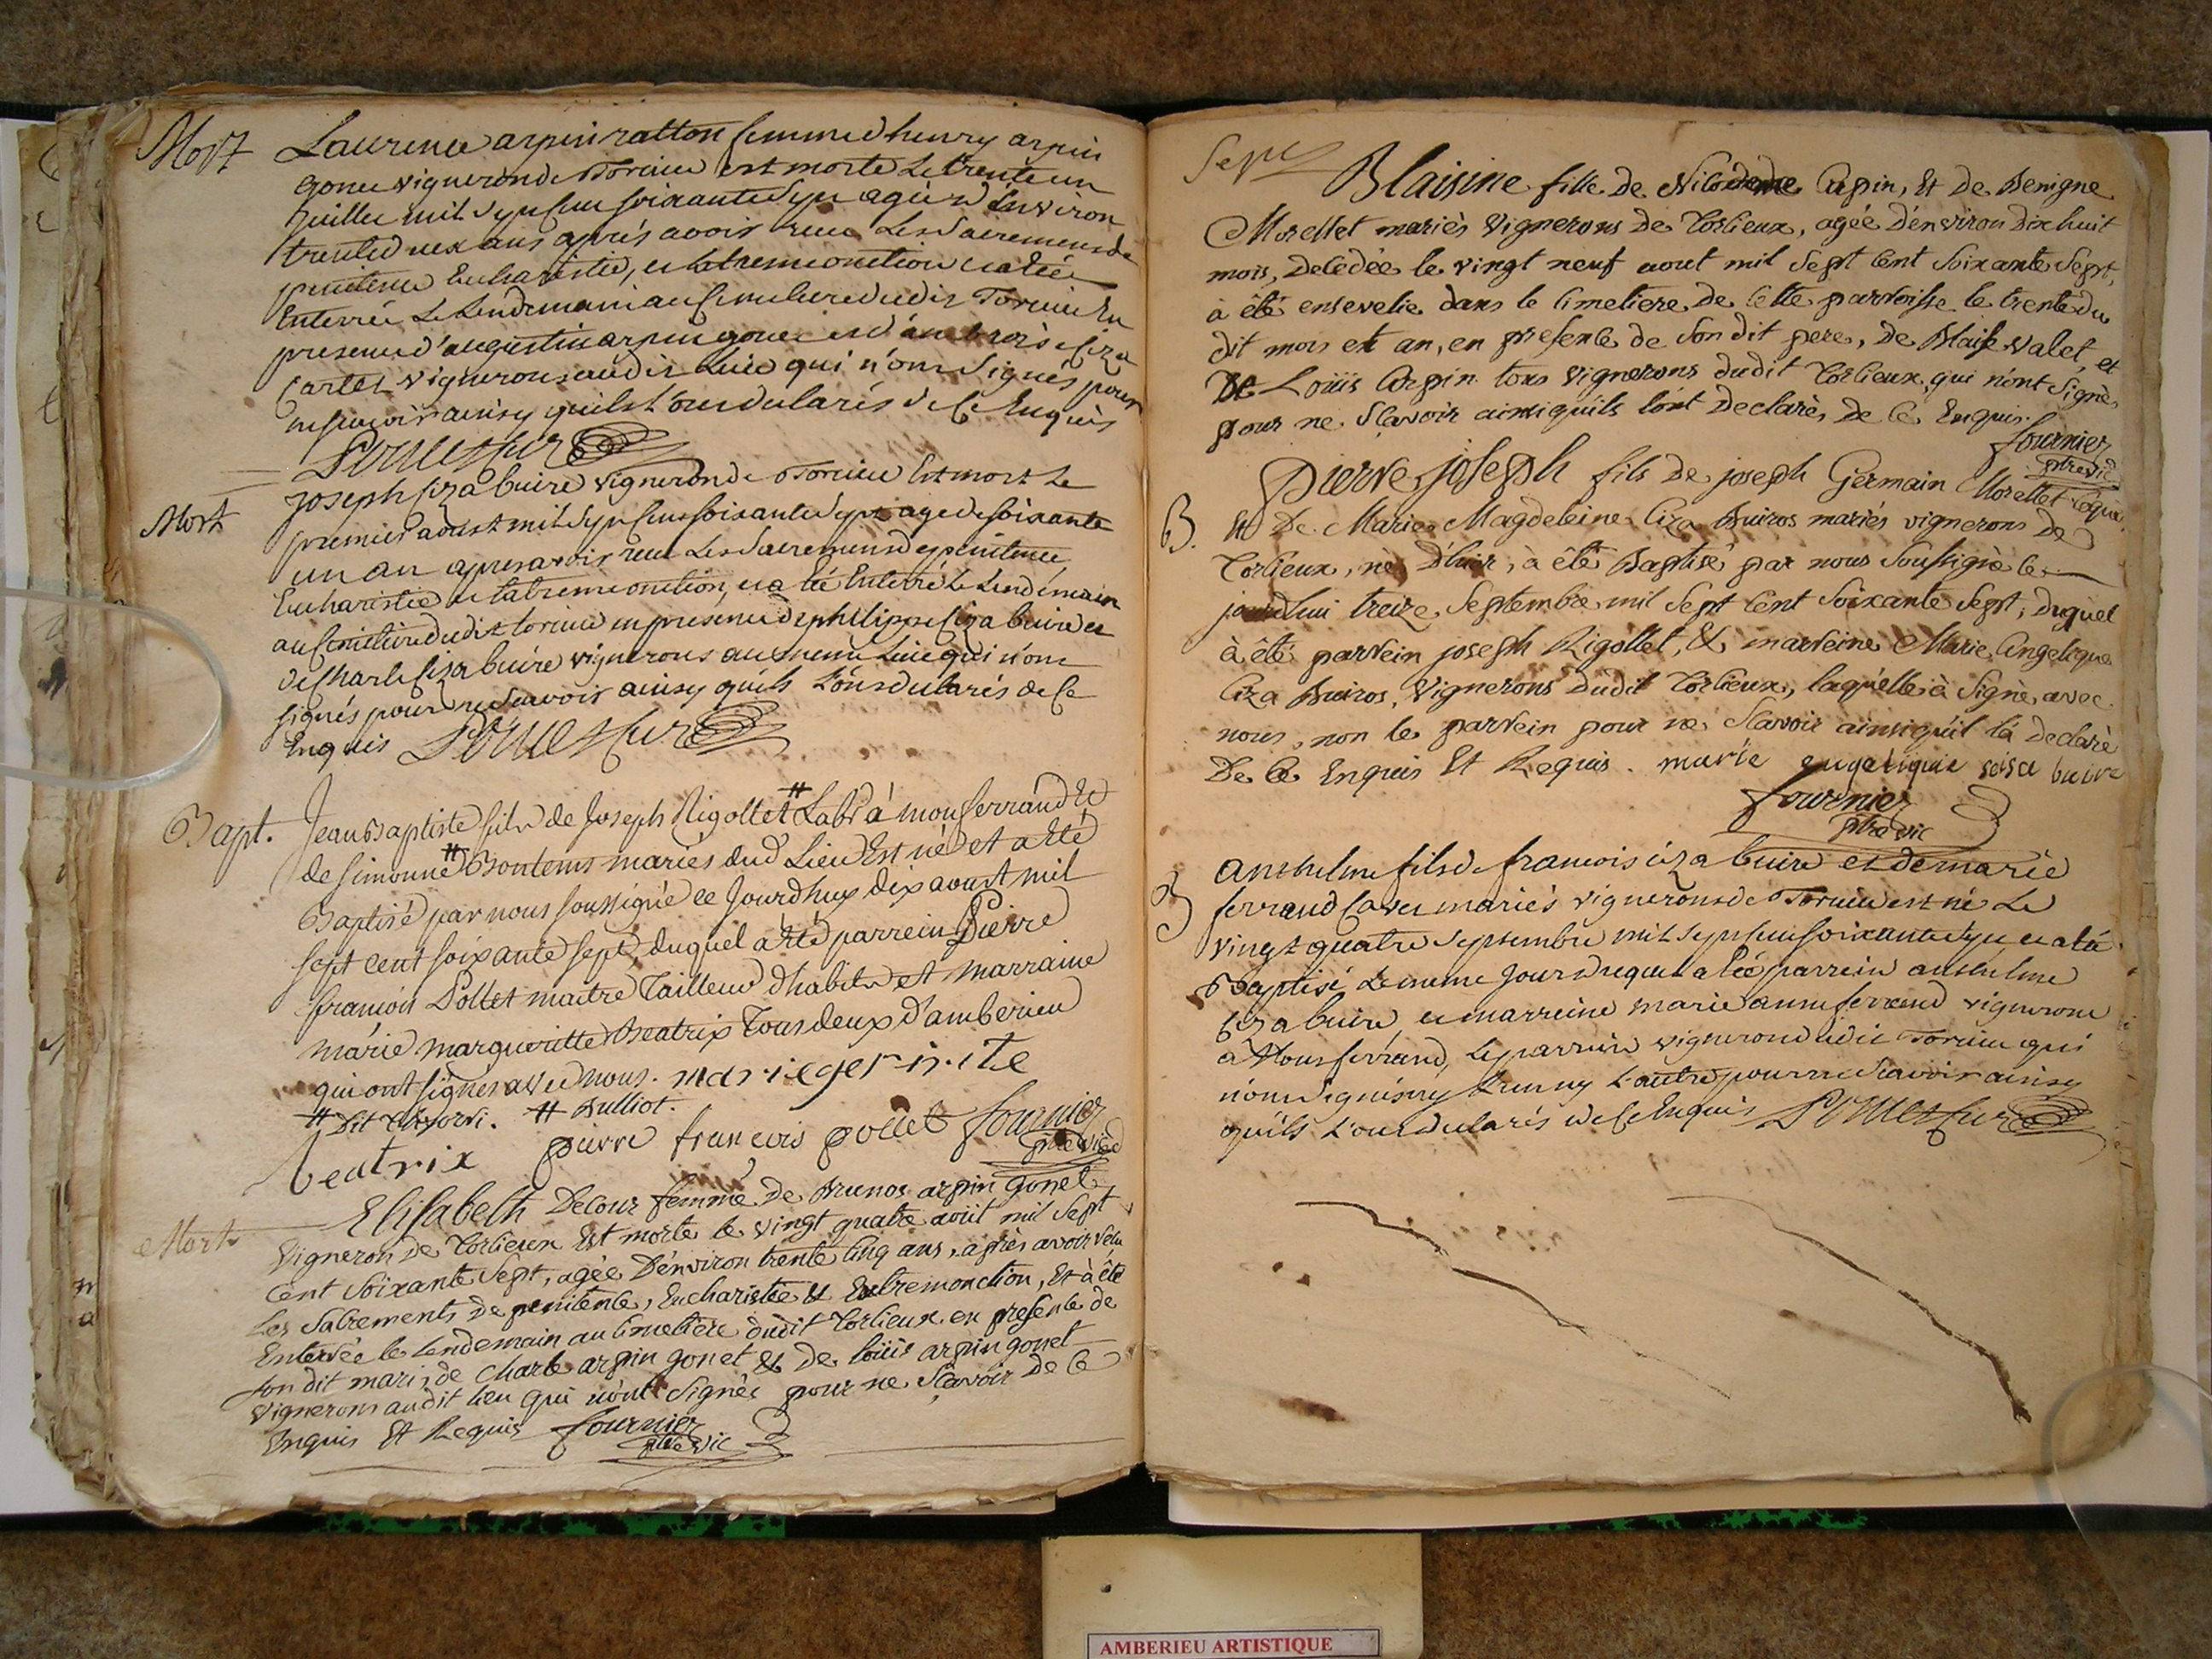 Mort
Laurence arpin ratton femme d'henry arpin
gonet vigneron de Torcieu est morte Le trente un
Juillet mil sept cent soixante sept agée d'environ
trente deux ans aprés avoir receu Les Sacremens de
penitence Eucharistie, et extremeonction et a été
Enterrée Le Lendemain au Cimetiere dudit Torcieu En
presence d'augustin arpin gonet et d'ambrois ciza
cartet vignerons audit Lieu qui n'ont signés pour
ne scavoir ainsy quils L'ont declarés de Ce Enquis
Mort
joseph ciza buire vigneron de Torcieu Est mort Le
premier aoust mil sept cent soixante sept age de soixante
un an apres avoir receu Les Sacremens de penitence
Eucharistie et extremeonction, et a été Enterré Le Lendemain
au Cimetiere dudit torcieu en presence de philippe ciza buire et
de Charle ciza buire vignerons au meme Lieu qui n'ont
signés pour ne scavoir ainsy quils L'ont declarés de Ce
Enquis
Bapt.
Jean Baptiste fils de Joseph Rigollet # Labr à monferrand et
de simonne # Bontems mariés dud Lieu Est né et a été
Baptisé par nous soussigné ce Jourdhuy dix aoust mil
sept cent soixante sept, duquel a été parrein Pierre
francois Pollet maitre Tailleur dhabits et marraine
marie margueritte Beatrix Tous deux d'amberieu
qui ont signés avec nous. marie gerite
# Dit # Bulliot.
beatrix pierre francois pollet fournier
ptre vic
Mort
Elisabeth Decour femme de Brunos arpin gonet
Vigneron de Torcieux Est morte le vingt quatre août mil sept
cent soixante sept, agée D'environ trente cinq ans, après avoir recu
Les Sacrements De penitence, Eucharistie et Extremonction, Et à été
Enterrée le Lendemain au cimetière dudit Torcieux en presence de
son dit mari, de Charle arpin gonet et de loüis arpin gonet
vignerons audit lieu qui n'ont signés pour ne scavoir De ce
Enquis Et Requis fournier
ptre vic
Sept
Blaisine fille de Nicodeme Arpin, et de Benigne
Morellet mariès Vignerons De Torcieux, agée d'environ dix huit
mois, Decedée le vingt neuf aout mil sept cent soixante sept,
à été ensevelie dans le cimetiere de cette parroisse le trente du
dit mois et an, en presence de son dit pere, de Blaise Valet, et
De Loüis Arpin tous Vignerons dudit Torcieux, qui n'ont signès
pour ne scavoir ainsi quils l'ont Declarès De ce Enquis.
fournier
ptre vic
B.
Pierre joseph fils de joseph Germain Morellet
et De Marie Magdeleine Ciza Buiros mariès vignerons de
Torcieux, nè D'hier, à été Baptisé par nous soussignè ce
jourdhui treize Septembre mil sept cent soixante sept, duquel
à été parrein joseph Rigollet, & marreine Marie Angelique
Ciza Buiros, Vignerons dudit Torcieux, laquelle à signè avec
nous, non le parrein pour ne scavoir ainsi quil la declarè
De ce Enquis Et Requis. marie engelique sisa buire
fournier
ptre vic
B
anthelme fils de francois ciza buire et de marie
ferrand mariés vignerons de Torcieu est né Le
vingt quatre septembre mil sept cent soixante sept et a été
Baptisé Le meme jour duquel a été parrein anthelme
ciza buire et marreine marie anne ferrand vigneronne
a Monferrand, Le parrein vigneron audit Torcieu qui
n'ont signés ny L'un ny L'autre pour ne scavoir ainsy
quils L'ont declarés de Ce Enquis
AMBERIEU ARTISTIQUE